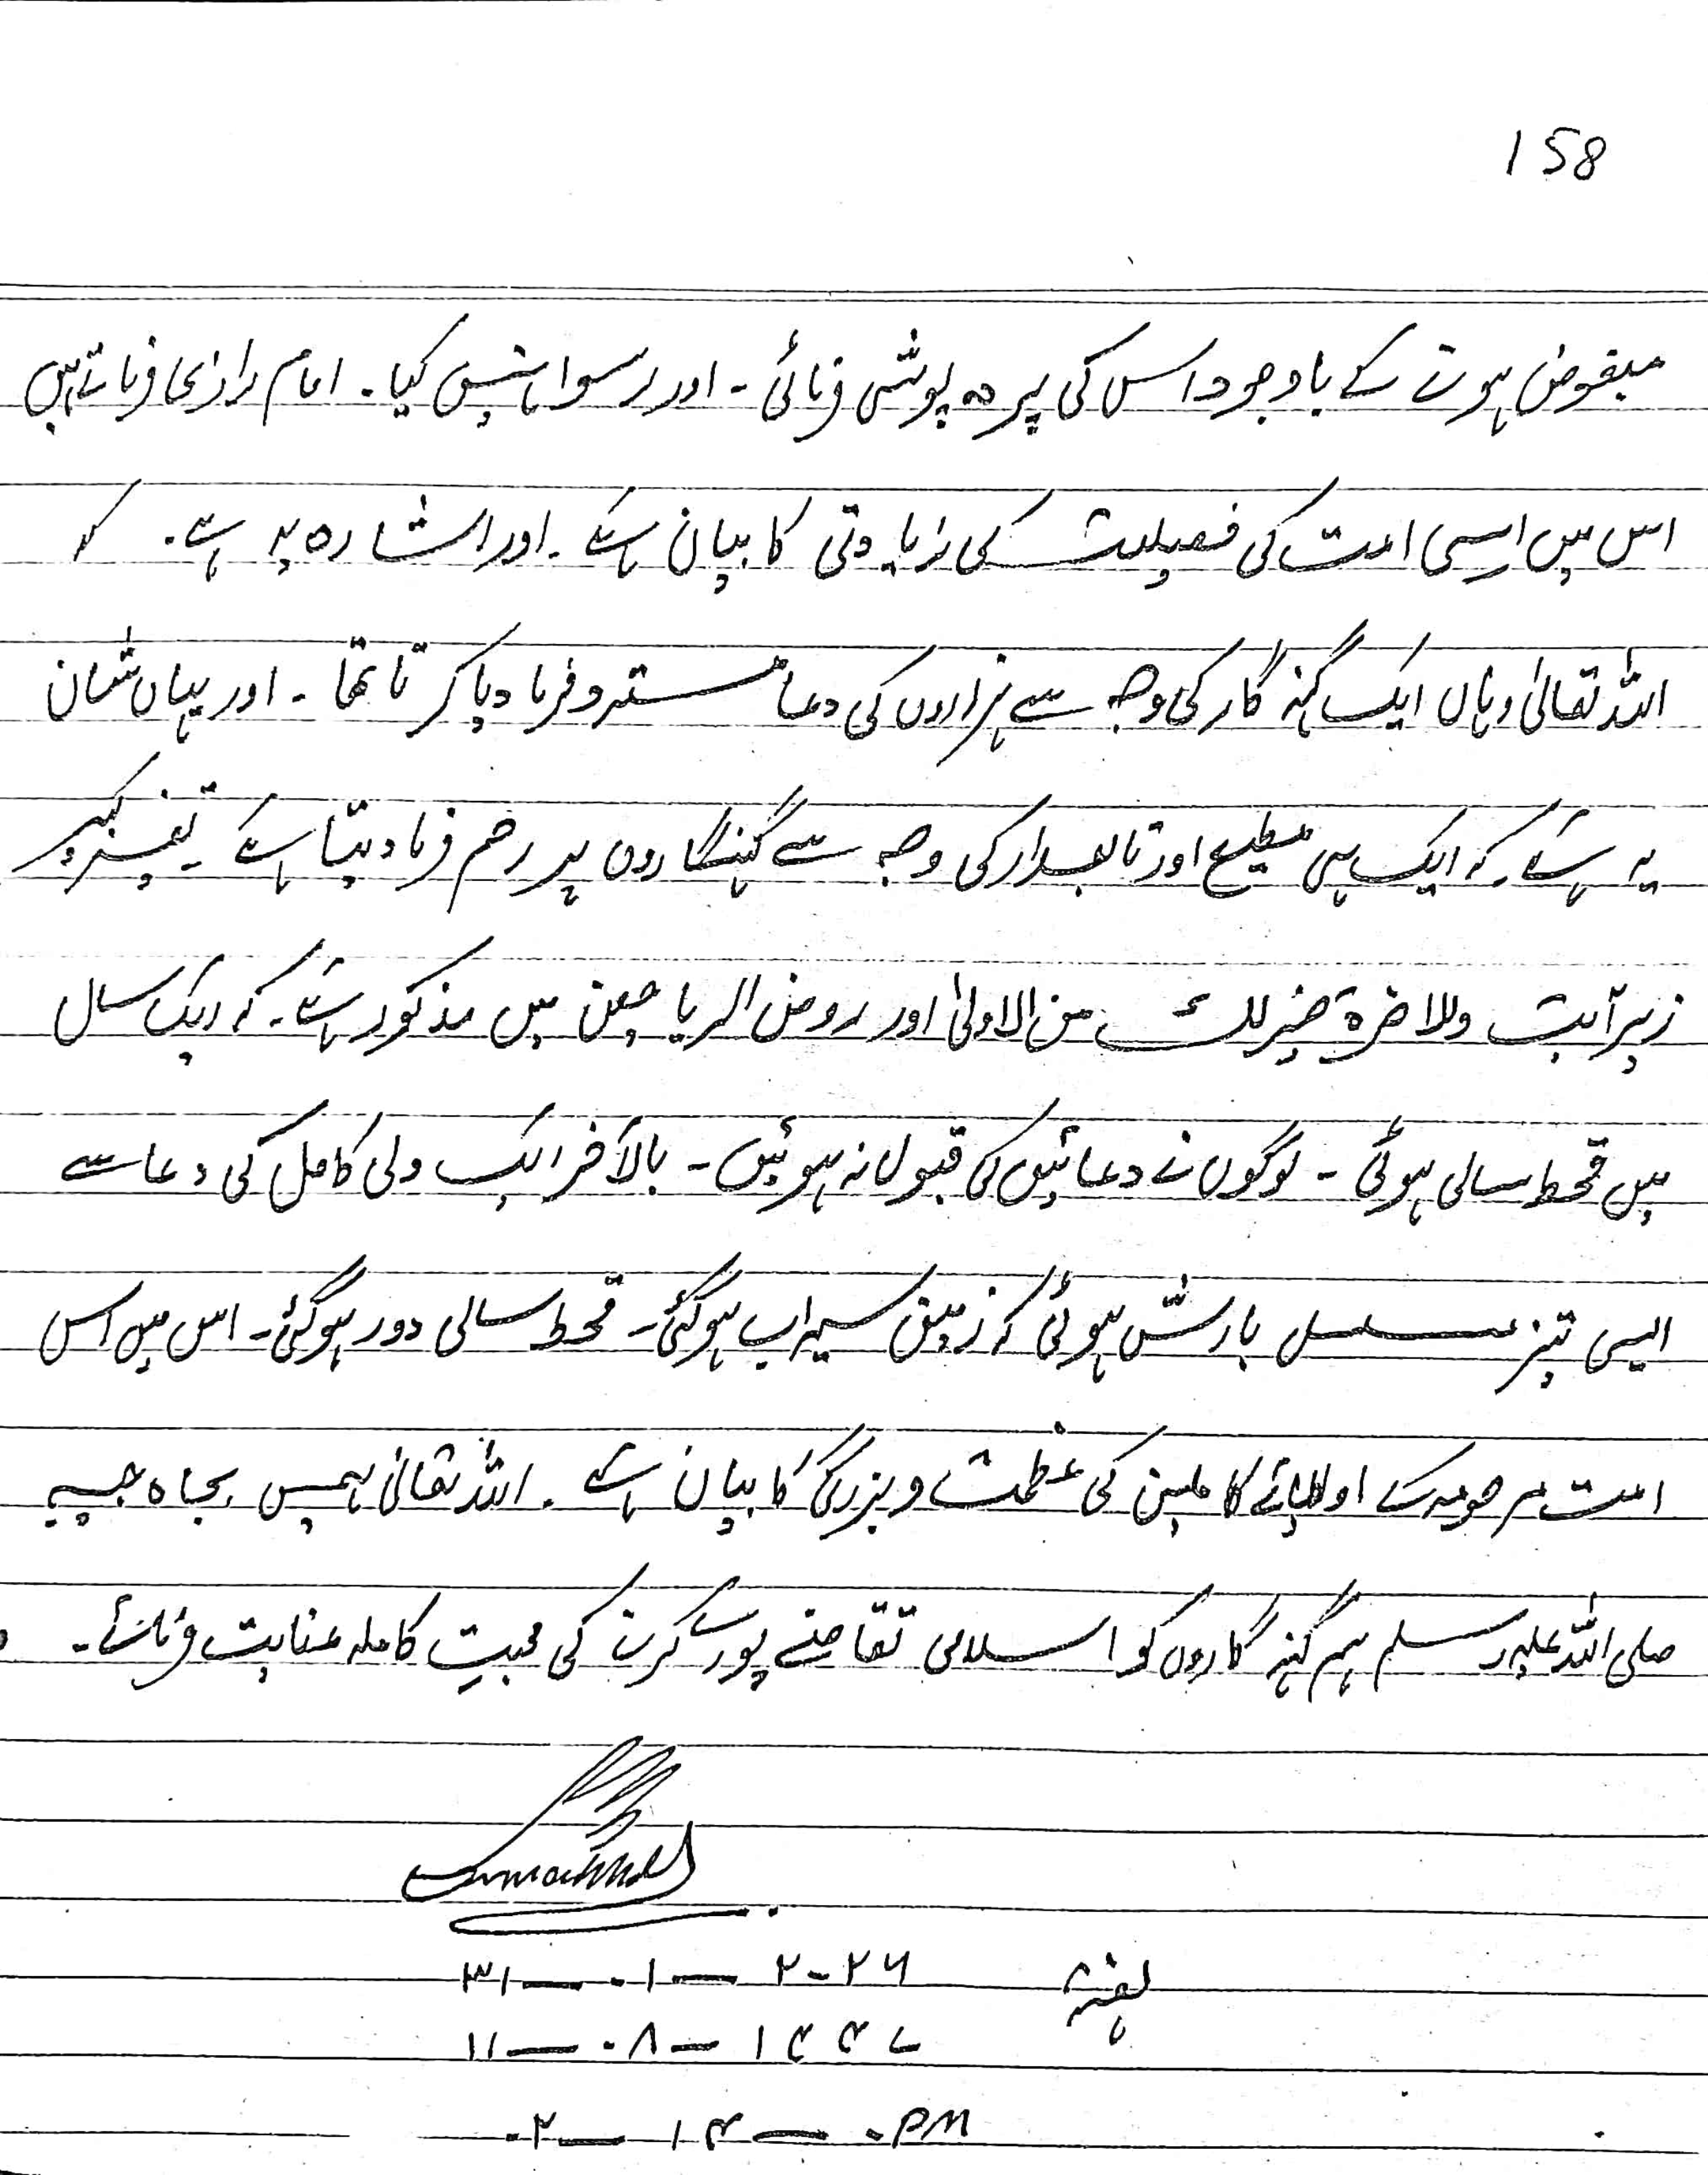 158
مبغوض ہونے کے باوجود اس کی پردہ پوشی فرمائی ۔ اور رسوا نہیں کیا ۔ امام رازی فرماتے ہیں
اس میں اسی امت کی فضیلت کی زیادتی کا بیان ہے ۔ اور اشارہ یہ ہے ۔ کہ
اللہ تعالیٰ وہاں ایک گنہ گار کی وجہ سے ہزاروں کی دعا مسترد فرما دیا کرتا تھا ۔ اور یہاں شان
یہ ہے ۔ کہ ایک ہی مطیع اور تابعدار کی وجہ سے گنہگاروں پر رحم فرما دیتا ہے ۔ تفسیر کبیر
زیر آیت وللاخرۃ خیر لک من الاولیٰ اور روض الریاحین میں مذکور ہے ۔ کہ ایک سال
میں قحط سالی ہوئی ۔ لوگوں نے دعائیں کی قبول نہ ہوئیں ۔ بالآخر ایک ولی کامل کی دعا سے
ایسی تیز مسلسل بارش ہوئی کہ زمین سیراب ہوگئی ۔ قحط سالی دور ہوگئی ۔ اس میں اس
امت مرحومہ کے اولیائے کاملین کی عظمت و بزرگی کا بیان ہے ۔ اللہ تعالیٰ ہمیں بجاہ حبیبہ
صلی اللہ علیہ وسلم ہم گنہ گاروں کو اسلامی تقاضے پورے کرنے کی محبتِ کاملہ عنایت فرمائے ۔
ہفتہ ۳۱ — ۰۱ — ۲۰۲۶
۱۱ — ۰۸ — ۱۴۴۷
۰۲ — ۱۴ — ۰PM